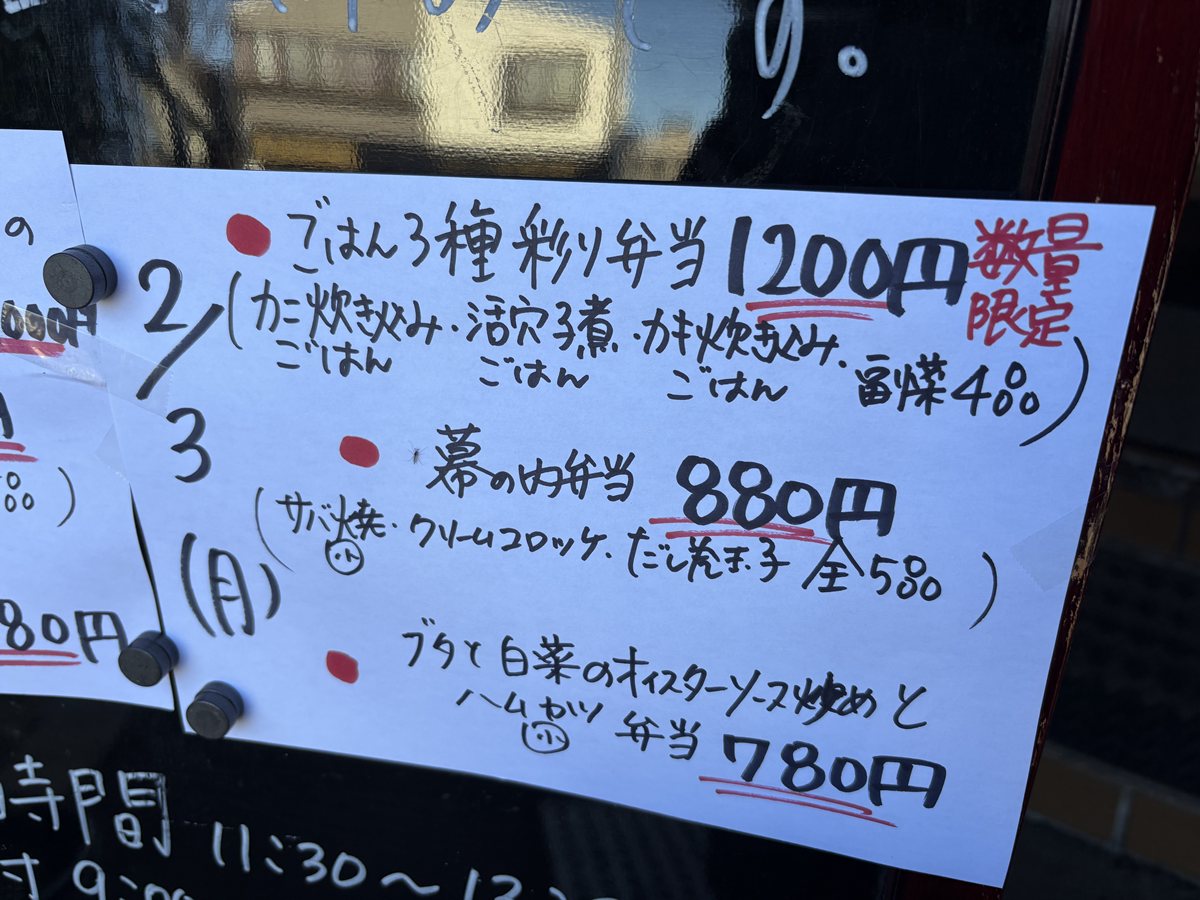 す。
の
000円
80円
2/3
(月)
●ごはん3種彩り弁当 1200円 数量限定
(カニ炊き込みごはん・活穴子煮ごはん・カキ炊き込みごはん・副菜4品)
●幕の内弁当 880円
(サバ焼(小)・クリームコロッケ・だし巻玉子 全5品)
●ブタと白菜のオイスターソース炒めと
ハムカツ(小)弁当 780円
時間 11:30～13:
付 9:00